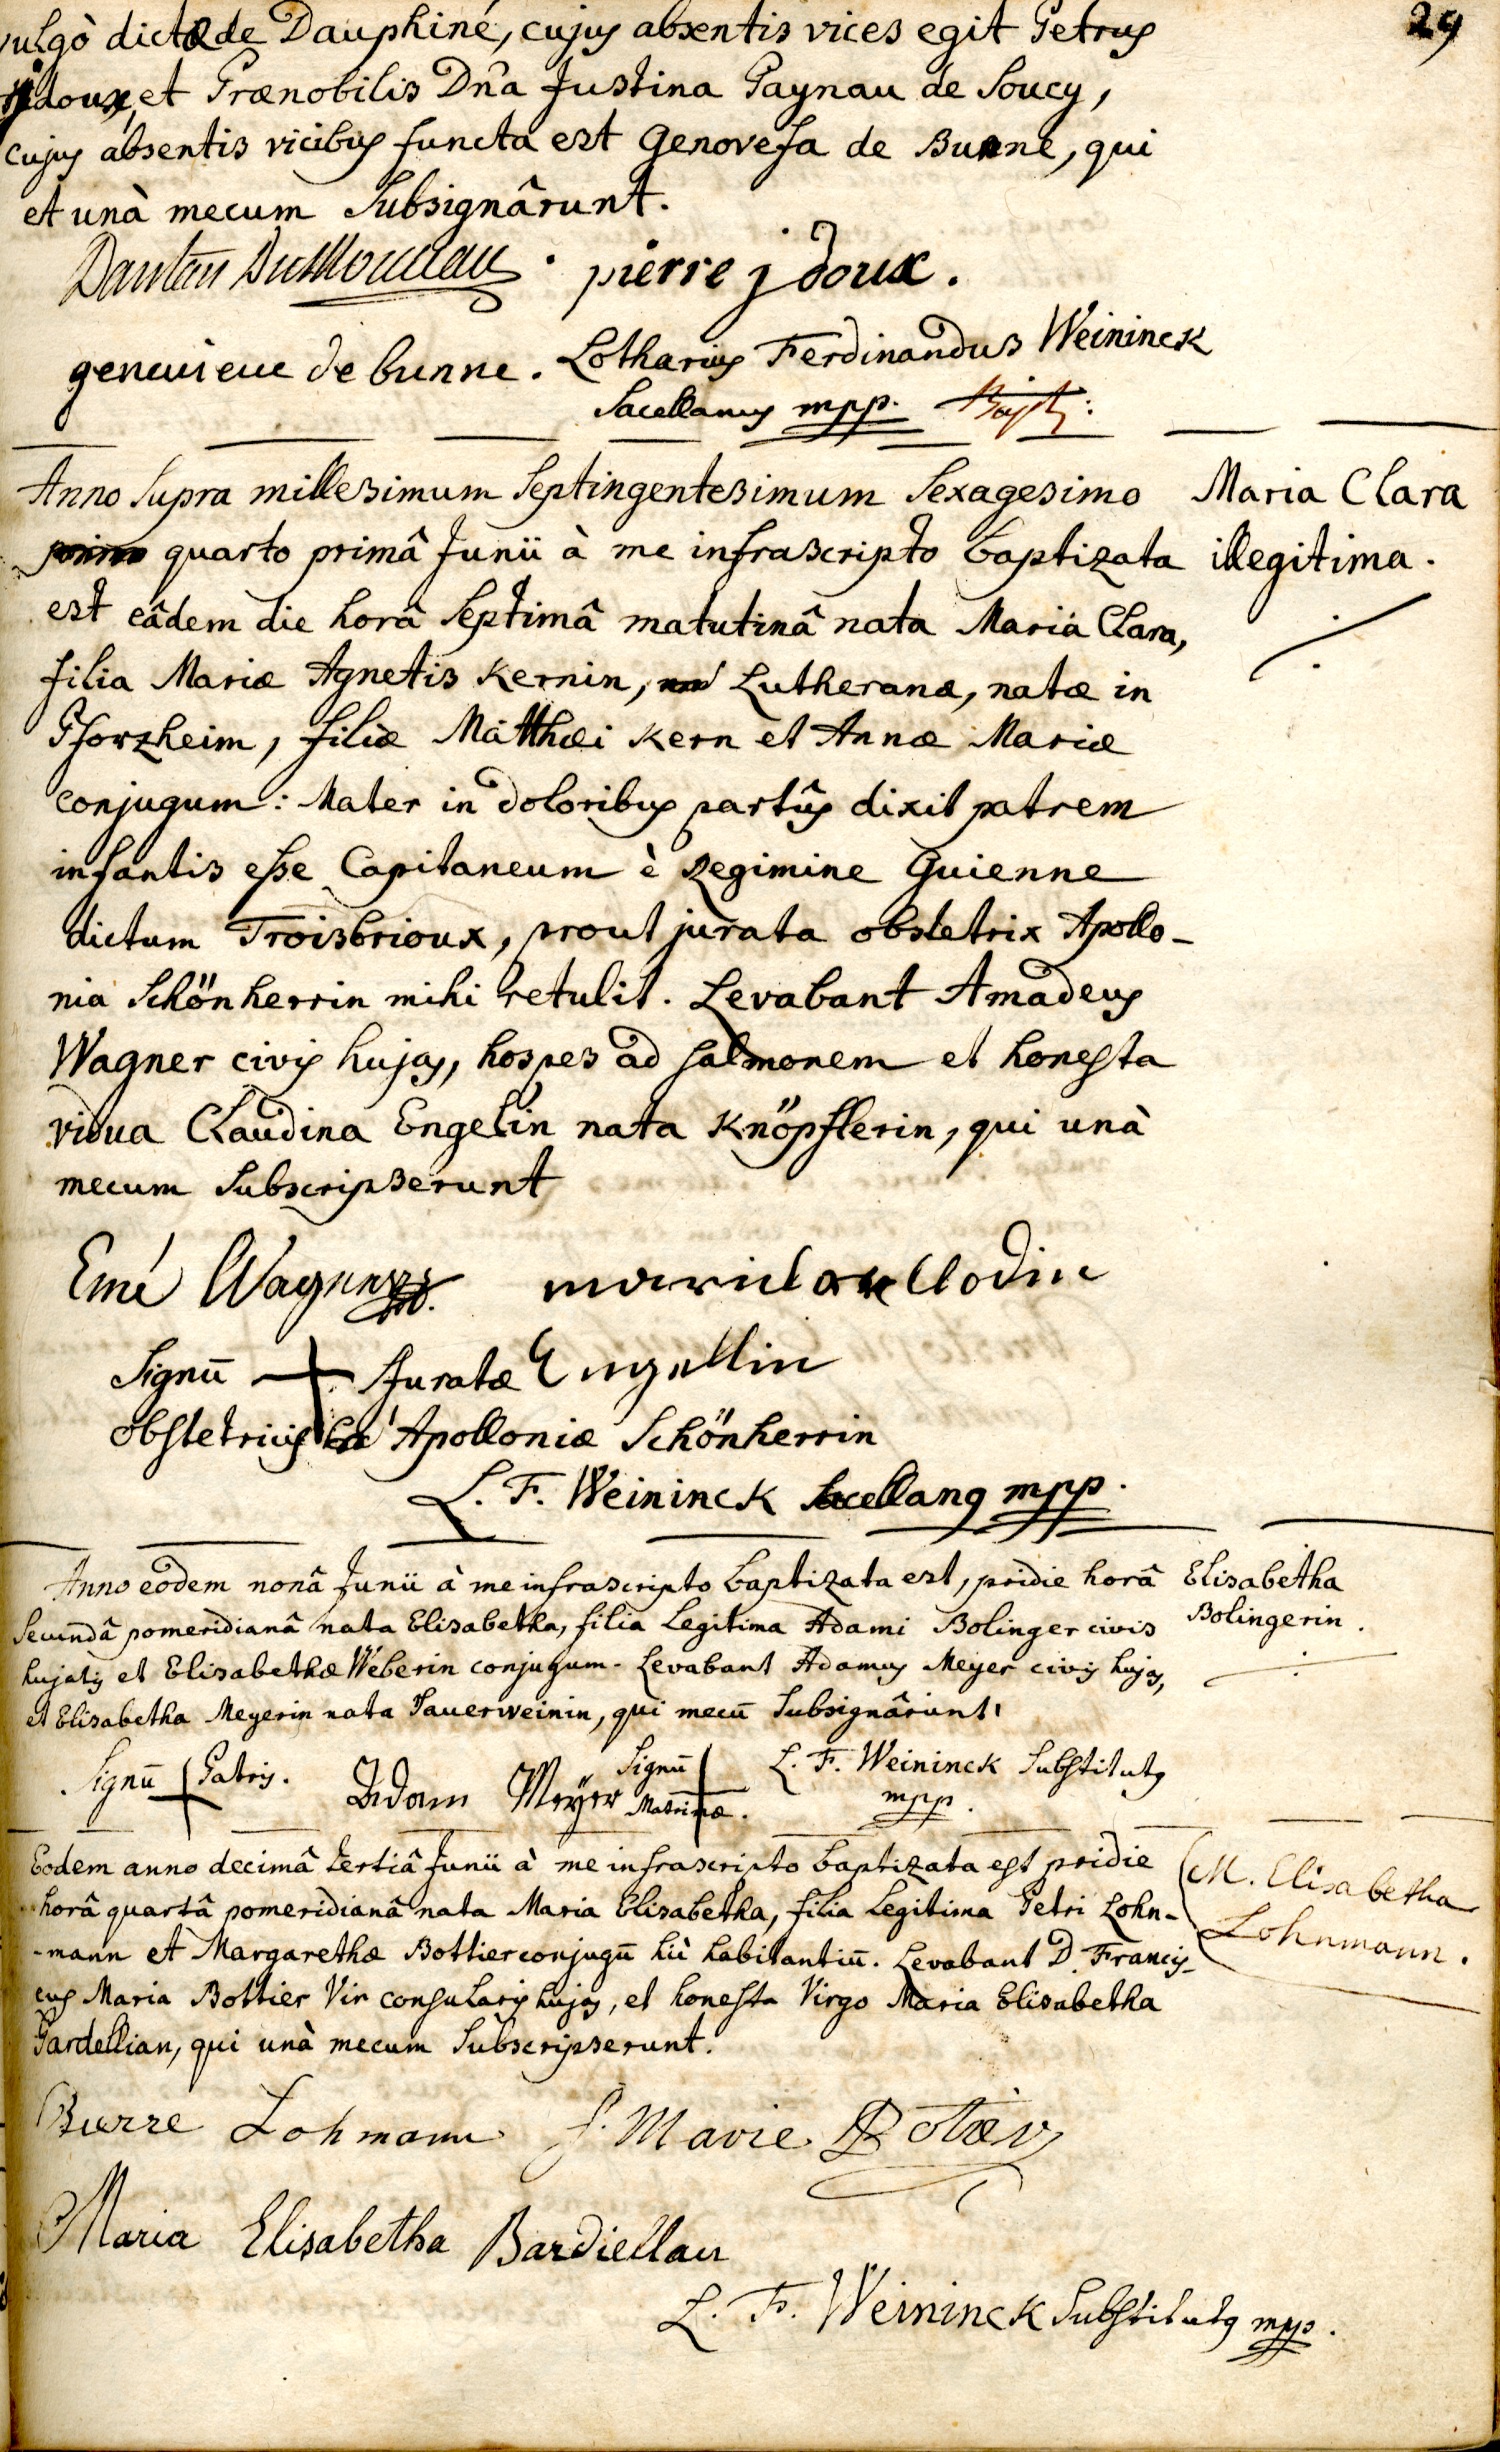 29
vulgò dictæ de Dauphiné, cujus absentis vices egit Petrus
jidoux, et Prænobilis Dña Justina Paynau de Soucy,
cujus absentis vicibus functa est Genovefa de Bunne, qui
et unà mecum Subsignârunt.
pierre j doux.
genevieve de bunne. Lotharius Ferdinandus Weininck
Sacellanus mpp.
Anno Supra millesimum Septingentesimum Sexagesimo
Maria Clara
quarto primâ Junii à me infrascripto baptizata
illegitima.
est eâdem die horâ Septimâ matutinâ nata Maria Clara,
filia Mariæ Agnetis Kernin, Lutheranæ, natæ in
Pforzheim, filiæ Matthæi Kern et Annæ Mariæ
conjugum: Mater in doloribus partûs dixit patrem
infantis esse Capitaneum è Regimine Guienne
dictum Troisbrioux, prout jurata obstetrix Apollo-
nia Schönherrin mihi retulit. Levabant Amadeus
Wagner civis hujas, hospes ad Salmonem et honesta
vidua Claudina Engelin nata Knöpflerin, qui unà
mecum Subscripserunt
Emé Wagner
Signū + Juratæ Engellin
obstetricis Apolloniæ Schönherrin
L. F. Weininck Sacellanq mpp.
Anno eodem nonâ Junii à me infrascripto baptizata est, pridie horâ
Elisabetha
Secundâ pomeridianâ nata Elisabetha, filia Legitima Adami Bolinger civis
Bolingerin.
hujatis et Elisabethæ Weberin conjugum. Levabant Adamus Meyer civis hujas,
et Elisabetha Meyerin nata Sauerweinin, qui mecū Subsignârunt.
Signū + Patris. Adam Meÿer Signū + Matrinæ. L. F. Weininck Substitutq
mpp.
Eodem anno decimâ tertiâ Junii à me infrascripto baptizata est pridie
M. Elisabetha
horâ quartâ pomeridianâ nata Maria Elisabetha, filia Legitima Petri Lohn-
Lohnmann.
-mann et Margarethæ Bottier conjugū hic habitantiū. Levabant D. Francis-
cus Maria Bottier Vir consularis hujas, et honesta Virgo Maria Elisabetha
Pardellian, qui unà mecum Subscripserunt.
Lohmann f. Marie Botier
Maria Elisabetha Bardiellan
L. F. Weininck Substitutq mpp.